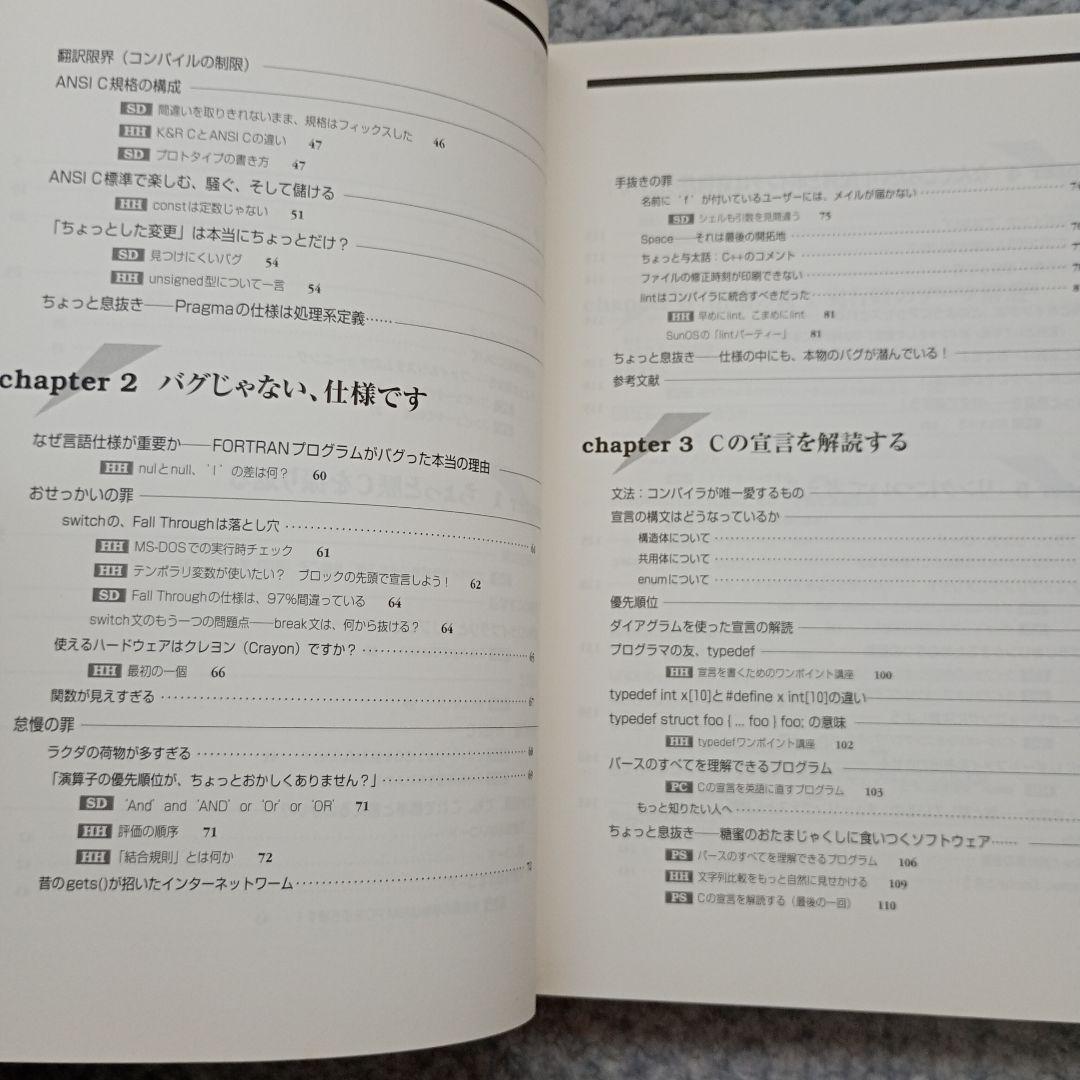 翻訳限界（コンパイルの制限）
ANSI C規格の構成
SD 間違いを取りきれないまま、規格はフィックスした 46
HH K&R CとANSI Cの違い 47
SD プロトタイプの書き方 47
ANSI C標準で楽しむ、騒ぐ、そして儲ける
HH constは定数じゃない 51
「ちょっとした変更」は本当にちょっとだけ？
SD 見つけにくいバグ 54
HH unsigned型について一言 54
ちょっと息抜き——Pragmaの仕様は処理系定義……
chapter 2 バグじゃない、仕様です
なぜ言語仕様が重要か——FORTRANプログラムがバグった本当の理由
HH nulとnull、'l' の差は何？ 60
おせっかいの罪
switchの、Fall Throughは落とし穴
HH MS-DOSでの実行時チェック 61
HH テンポラリ変数が使いたい？ ブロックの先頭で宣言しよう！ 62
SD Fall Throughの仕様は、97%間違っている 64
switch文のもう一つの問題点——break文は、何から抜ける？ 64
使えるハードウェアはクレヨン（Crayon）ですか？
HH 最初の一個 66
関数が見えすぎる
怠慢の罪
ラクダの荷物が多すぎる
「演算子の優先順位が、ちょっとおかしくありません？」
SD 'And' and 'AND' or 'Or' or 'OR' 71
HH 評価の順序 71
HH 「結合規則」とは何か 72
昔のgets()が招いたインターネットワーム
手抜きの罪
名前に 'f' が付いているユーザーには、メイルが届かない
SD シェルも引数を見間違う 75
Space——それは最後の開拓地
ちょっと与太話：C++のコメント
ファイルの修正時刻が印刷できない
lintはコンパイラに統合すべきだった
HH 早めにlint、こまめにlint 81
SunOSの「lintパーティー」 81
ちょっと息抜き——仕様の中にも、本物のバグが潜んでいる！
参考文献
chapter 3 Cの宣言を解読する
文法：コンパイラが唯一愛するもの
宣言の構文はどうなっているか
構造体について
共用体について
enumについて
優先順位
ダイアグラムを使った宣言の解読
プログラマの友、typedef
HH 宣言を書くためのワンポイント講座 100
typedef int x[10]と#define x int[10]の違い
typedef struct foo { ... foo } foo; の意味
HH typedefワンポイント講座 102
パースのすべてを理解できるプログラム
PC Cの宣言を英語に直すプログラム 103
もっと知りたい人へ
ちょっと息抜き——糖蜜のおたまじゃくしに食いつくソフトウェア……
PS パースのすべてを理解できるプログラム 106
HH 文字列比較をもっと自然に見せかける 109
PS Cの宣言を解読する（最後の一回） 110